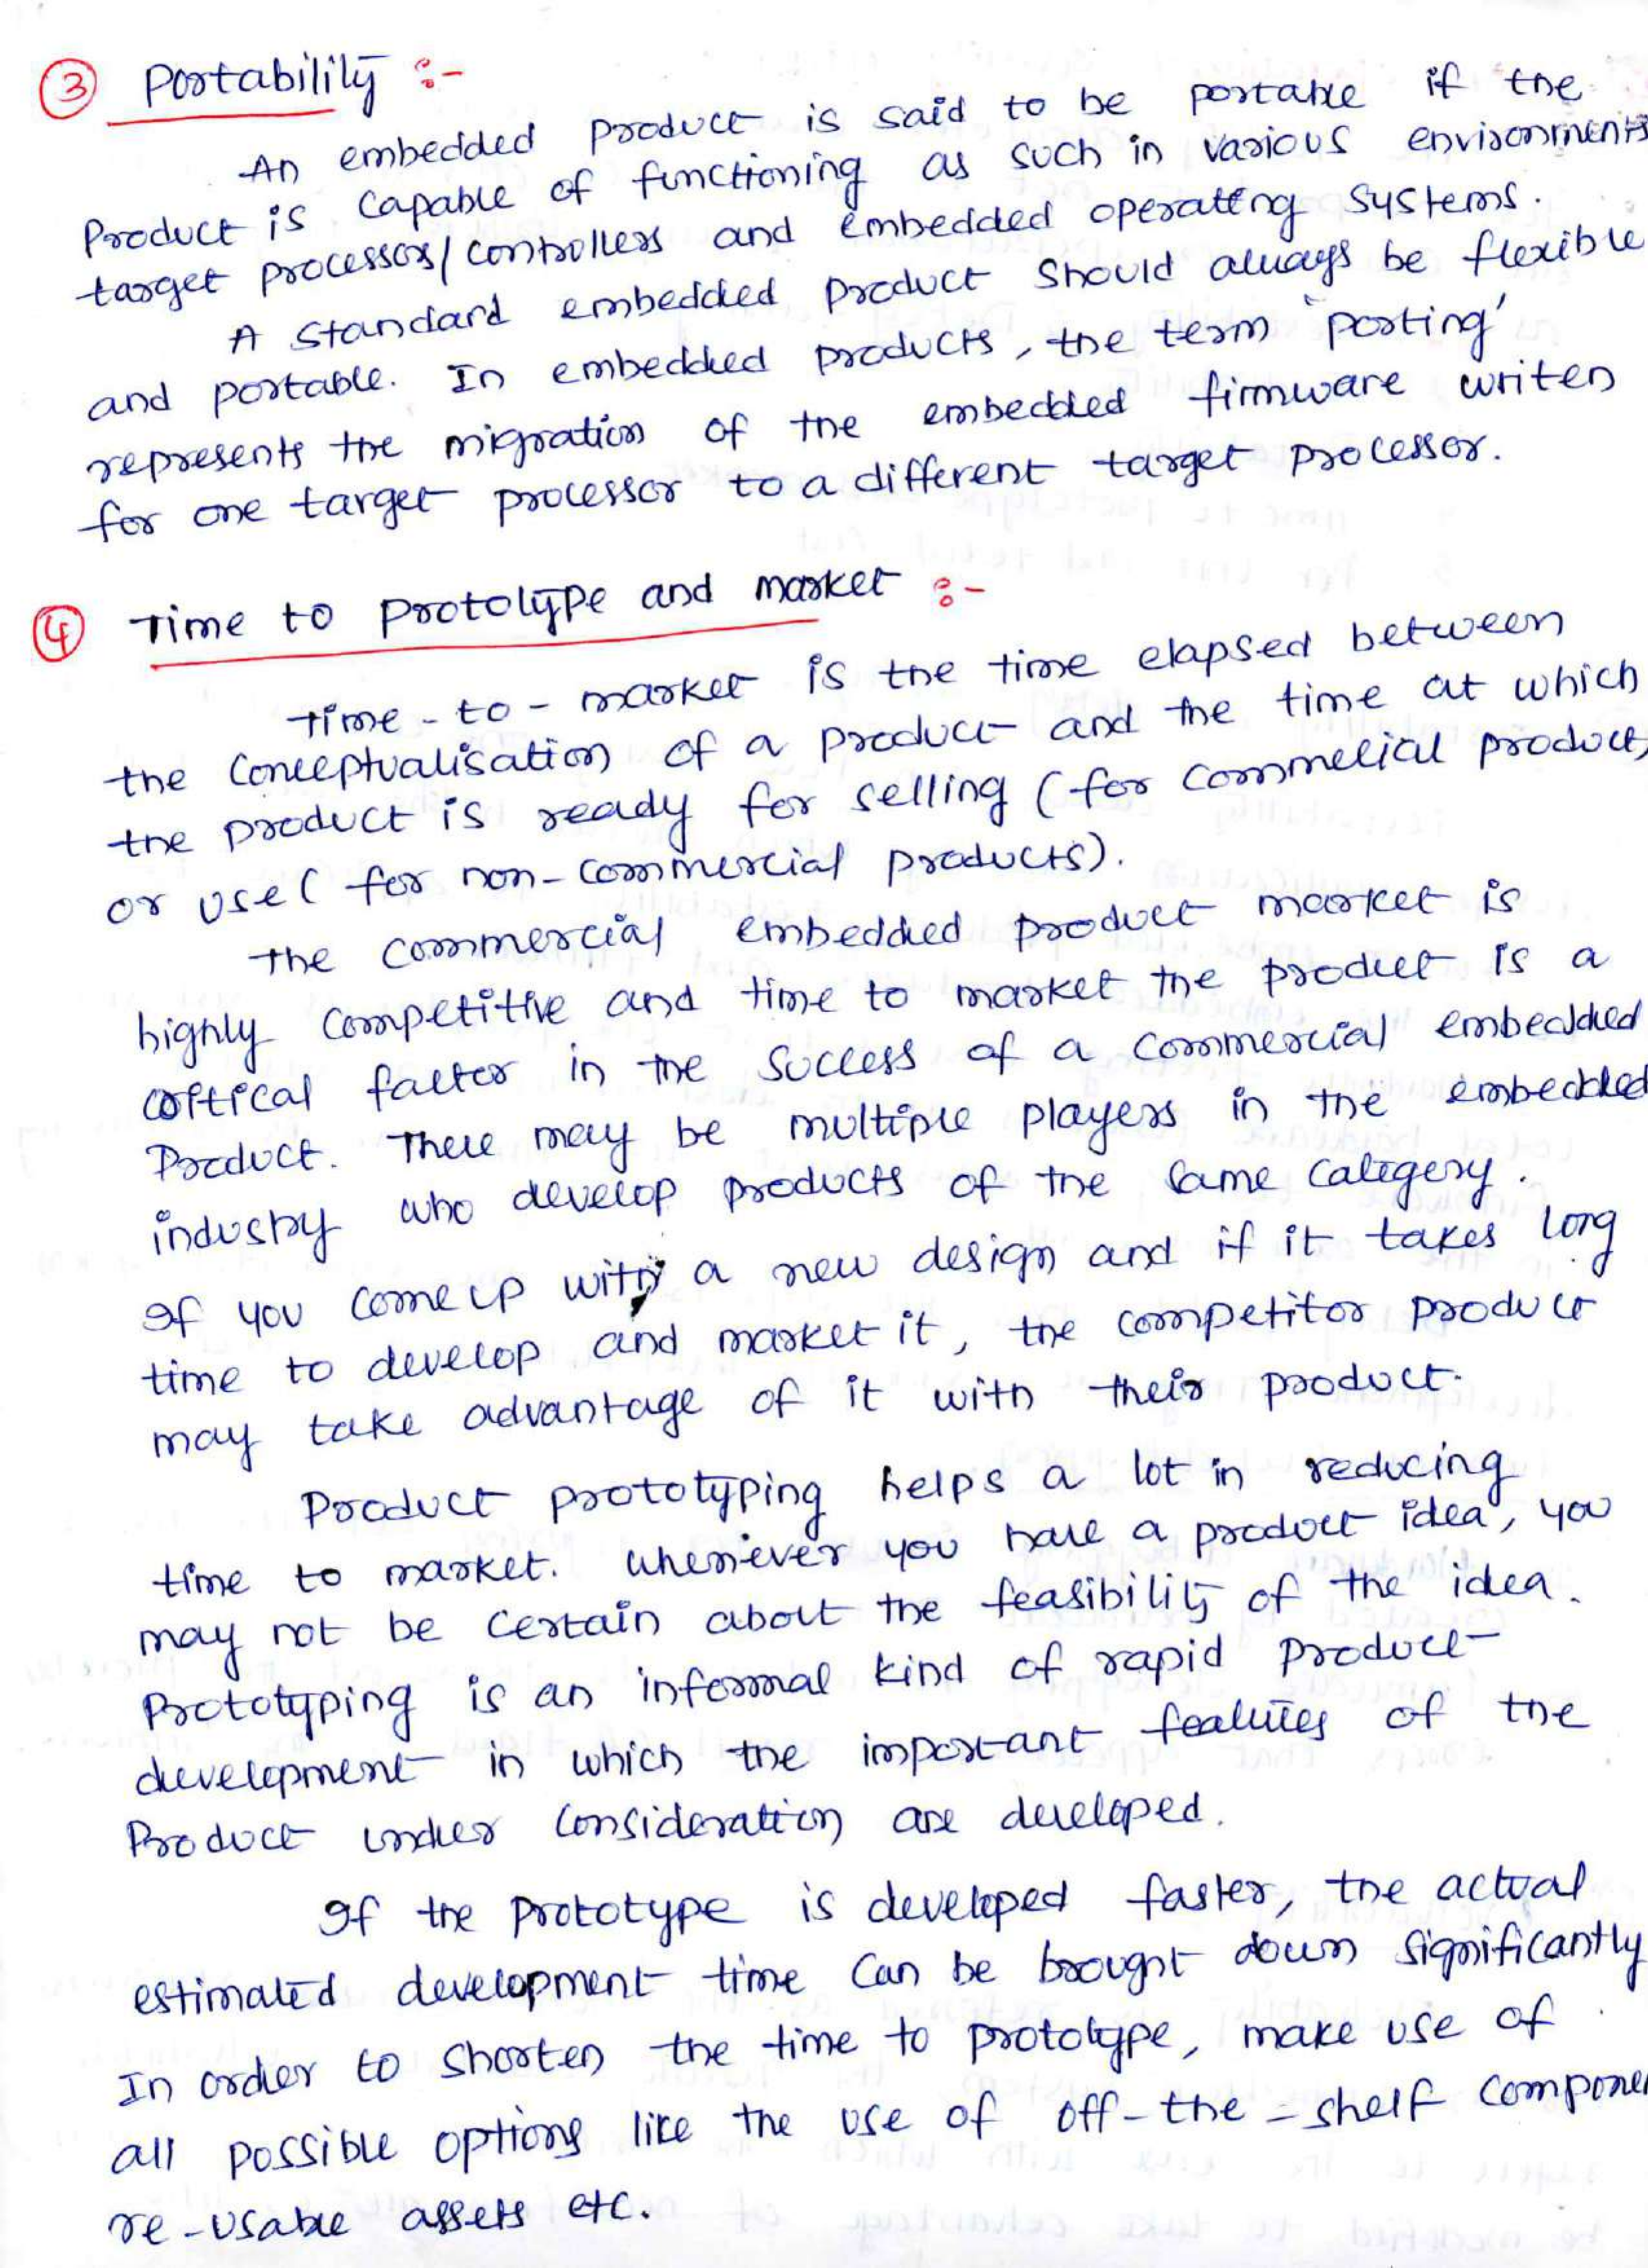 ③ Portability :-
An embedded product is said to be portable if the
Product is capable of functioning as such in various environments
target processors/controllers and embedded operating systems.
A standard embedded product should always be flexible
and portable. In embedded products, the term 'porting'
represents the migration of the embedded firmware writen
for one target processor to a different target processor.
④ Time to Prototype and market :-
Time-to-market is the time elapsed between
the conceptualisation of a product and the time at which
the product is ready for selling (for commelical product,
or use (for non-commercial products).
The commercial embedded product market is
highly competitive and time to market the product is a
critical factor in the success of a commercial embedded
Product. There may be multiple players in the embedded
industry who develop products of the same category.
If you come up with a new design and if it takes long
time to develop and market it, the competitor product
may take advantage of it with their product.
Product prototyping helps a lot in reducing
time to market. whenever you have a product idea, you
may not be certain about the feasibility of the idea.
Prototyping is an informal kind of rapid product
development in which the important features of the
Product under consideration are developed.
If the prototype is developed faster, the actual
estimated development time can be brought down significantly
In order to shorten the time to prototype, make use of
all possible options like the use of off-the-shelf compone
re-usable assets etc.